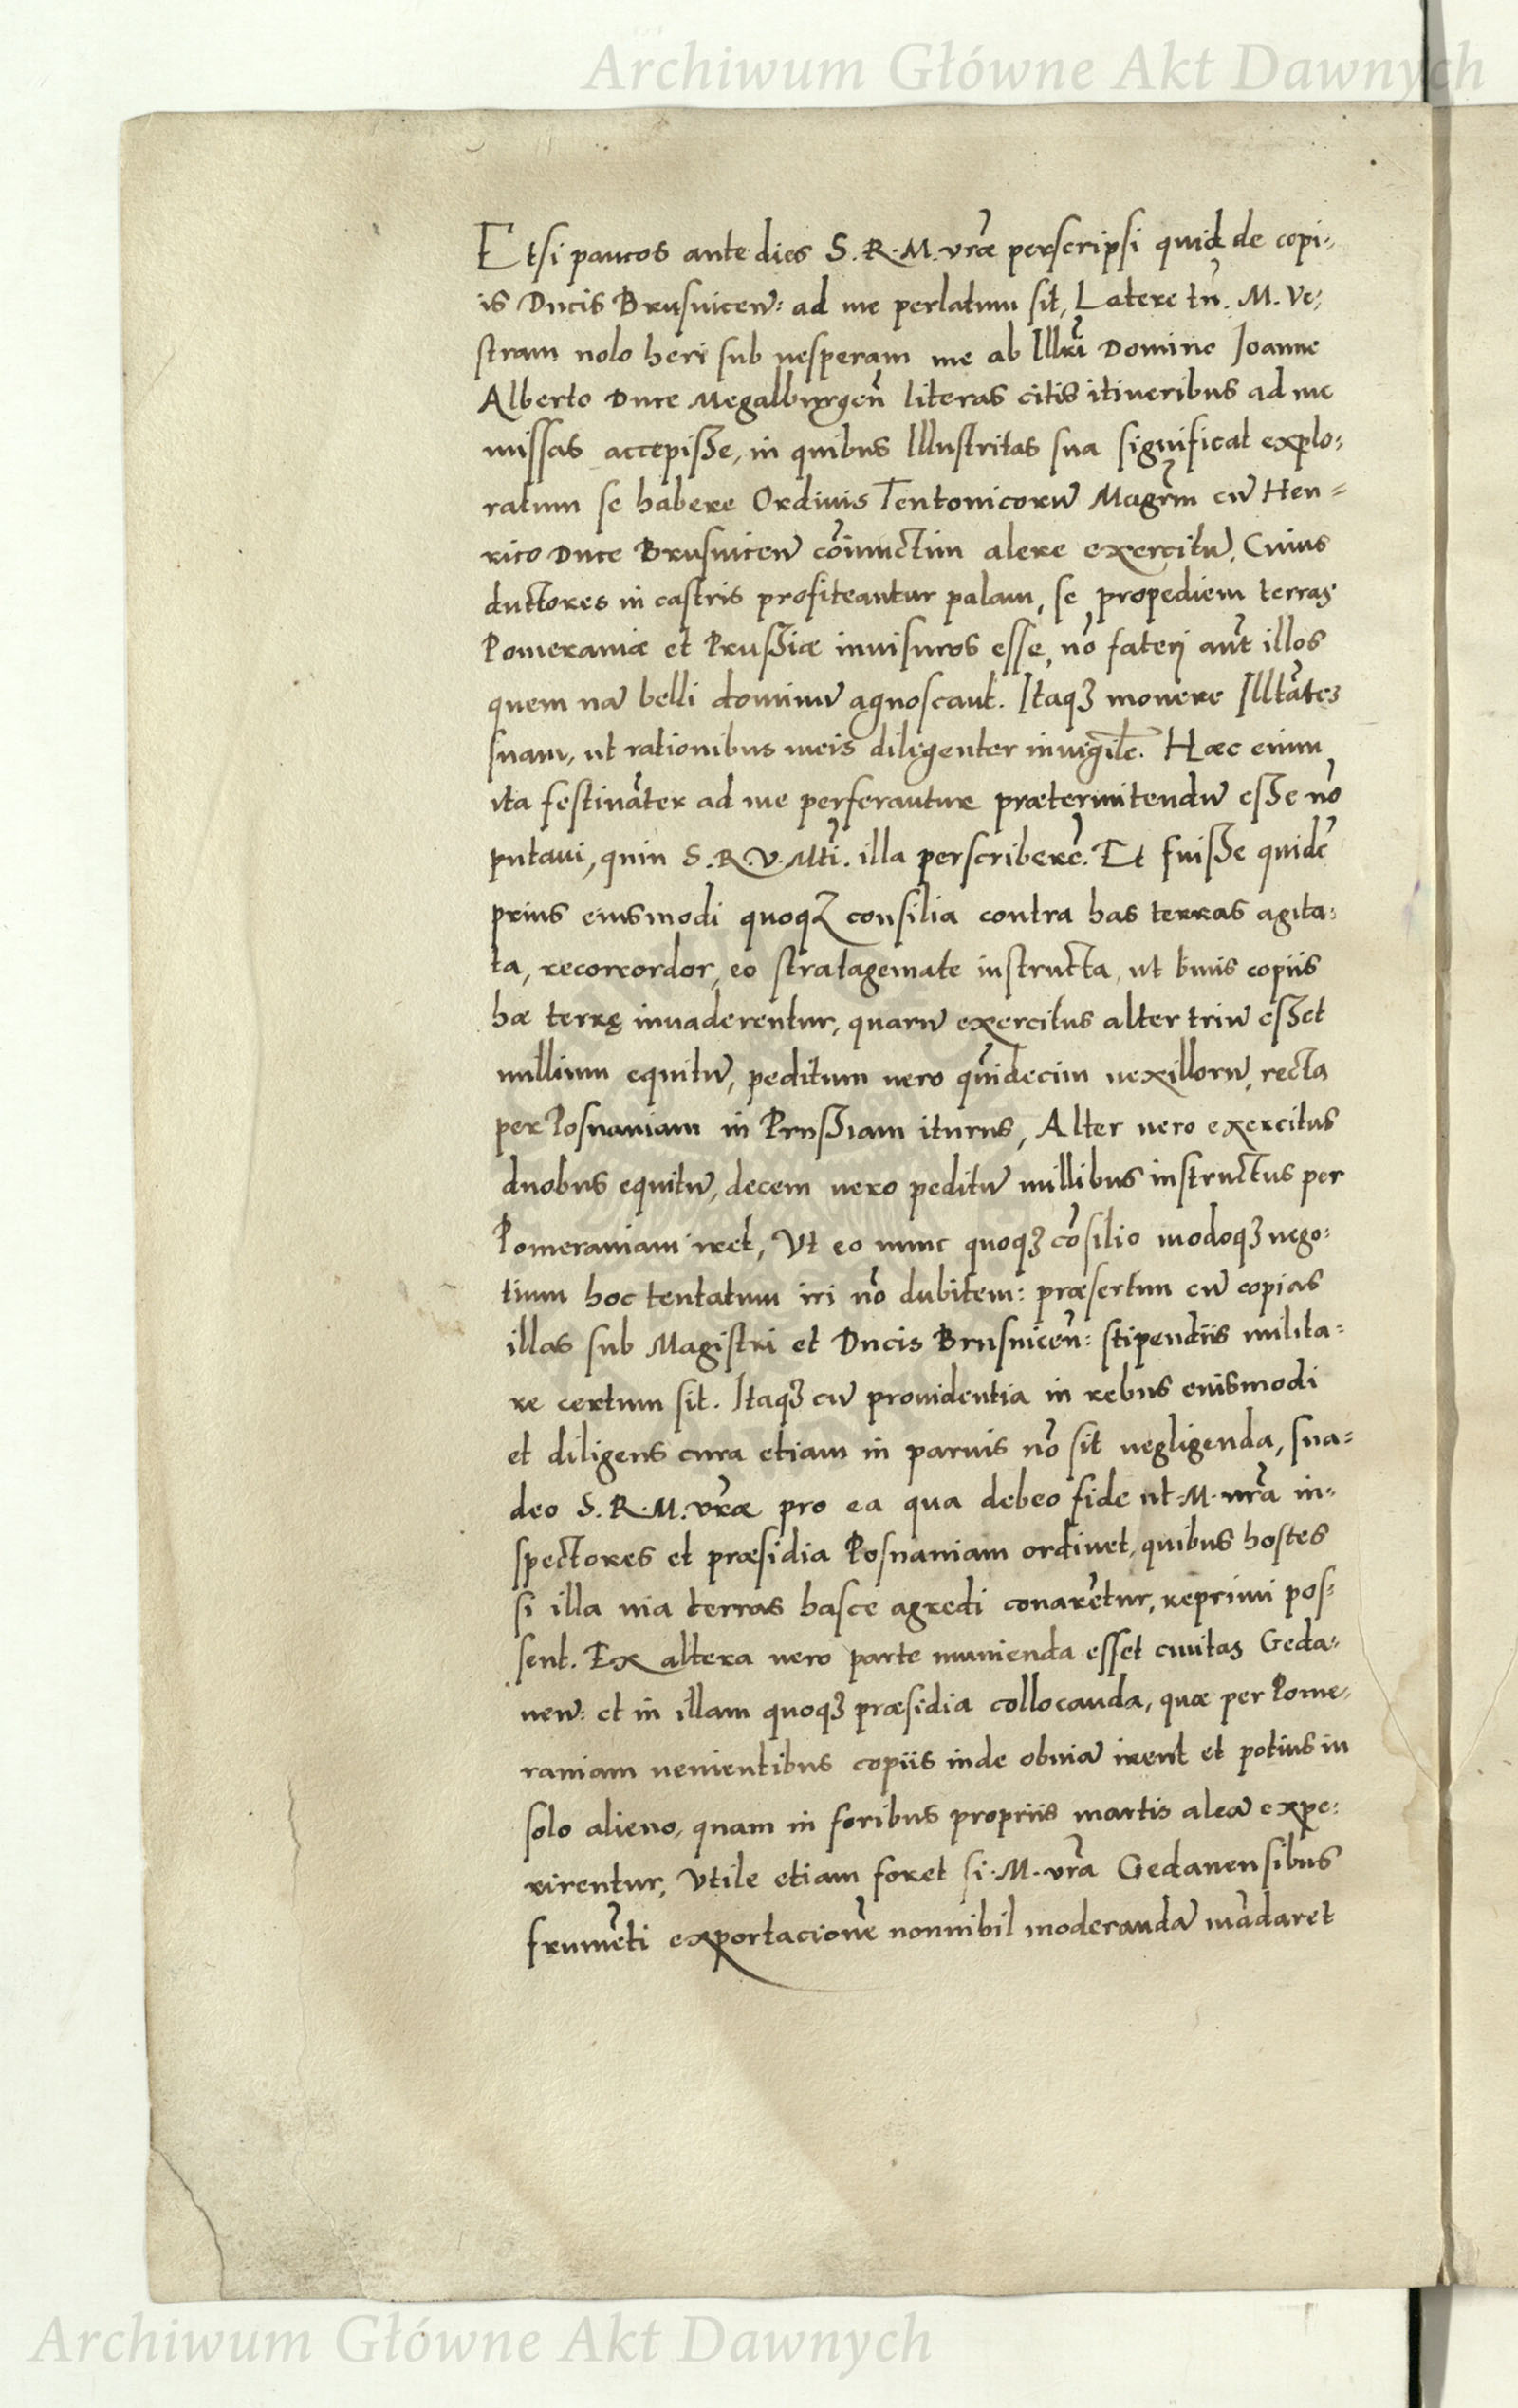 Archiwum Główne Akt Dawnych
Etsi paucos ante dies S. R. M. vrãe perscripsi quid de copi-
is Ducis Brusuicen: ad me perlatum sit, Latere tñ. M. Ve-
stram nolo heri sub uesperam me ab Illri Domino Joanne
Alberto Duce Megalburgeñ literas citis itineribus ad me
missas accepisse, in quibus Illustritas sua significat explo-
ratum se habere Ordinis Teutonicorũ Magrm cũ Hen-
rico Duce Brusuiceñ cõiunctim alere exercitũ, Cuius
ductores in castris profiteantur palam, se propediem terras
Pomeraniæ et Prussiæ inuisuros esse, nõ faterj aũt illos
quem nã belli dominũ agnoscant. Itaqꝫ monere Illtãtẽ
suam, ut rationibus meis diligenter inuigile͡. Hæc enim
ita festinãter ad me perferantur prætermitendũ esse nõ
putaui, quin S. R. V. Mti. illa perscriberẽ. Et fuisse quidẽ
prius eiusmodi quoqꝫ consilia contra has terras agita-
ta, recorcordor, eo stratagemate instructa, ut binis copiis
hæ terrę inuaderentur, quarũ exercitus alter triũ esset
millium equitũ, peditum uero quĩdecim uexillorũ, recta
per Posnaniam in Prussiam iturus, Alter uero exercitus
duobus equitũ, decem uero peditũ millibus instructus per
Pomeraniam iret, Vt eo nunc quoqꝫ cõsilio modoqꝫ nego-
tium hoc tentatum iri nõ dubitem: præsertim cũ copias
illas sub Magistri et Ducis Brusuiceñ: stipendiis milita-
re certum sit. Itaqꝫ cũ prouidentia in rebus eiusmodi
et diligens cura etiam in paruis nõ sit negligenda, sua-
deo S. R. M. vrãe pro ea qua debeo fide ut M. urã in-
spectores et præsidia Posnaniam ordinet, quibus hostes
si illa uia terras hasce agredi conarẽtur, reprimi pos-
sent. Ex altera uero parte munienda esset ciuitas Geda-
neñ: et in illam quoqꝫ præsidia collocanda, quæ per Pome-
raniam uenientibus copiis inde obuiã irent et potius in
solo alieno, quam in foribus propriis martis aleã expe-
rirentur, Vtile etiam foret si M. vrã Gedanensibus
frumẽti exportacionẽ nonnihil moderandã mãdaret
Archiwum Główne Akt Dawnych